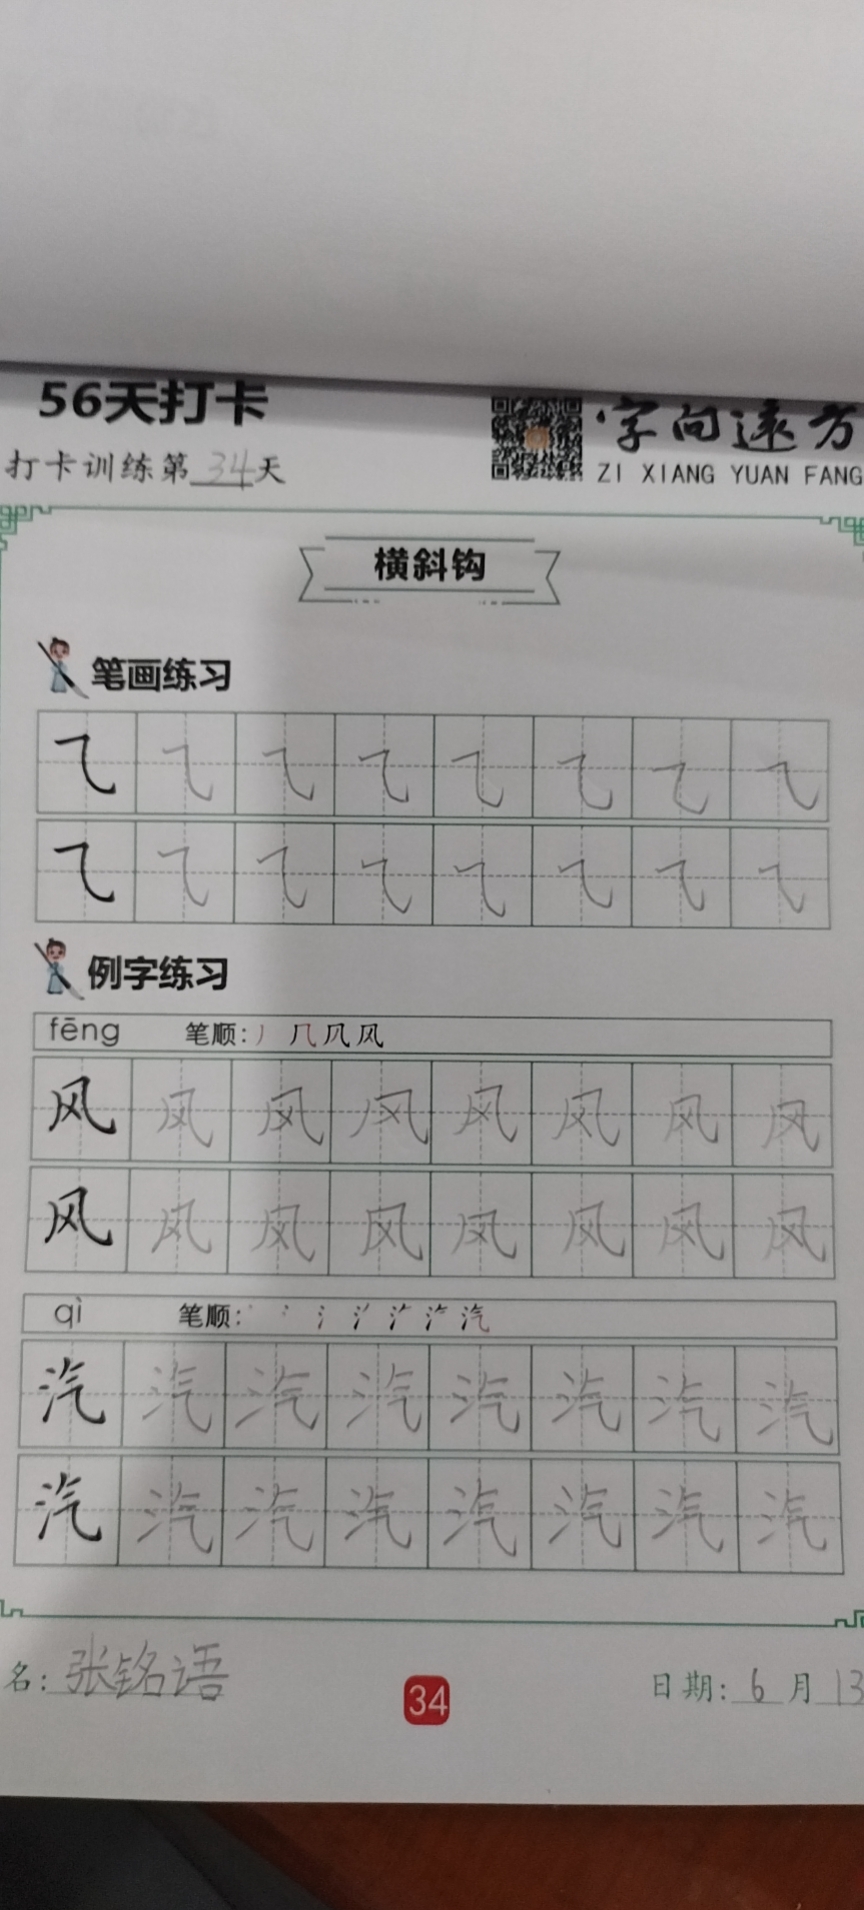 56天打卡
字向远方
打卡训练第34天
ZI XIANG YUAN FANG
横斜钩
笔画练习
⺄ ⺄ ⺄ ⺄ ⺄ ⺄ ⺄ ⺄
⺄ ⺄ ⺄ ⺄ ⺄ ⺄ ⺄ ⺄
例字练习
fēng 笔顺: 丿 几 凤 风
风 风 风 风 风 风 风 风
风 风 风 风 风 风 风 风
qì 笔顺: 汽
汽 汽 汽 汽 汽 汽 汽 汽
汽 汽 汽 汽 汽 汽 汽 汽
名: 张铭语
34
日期: 6 月 13